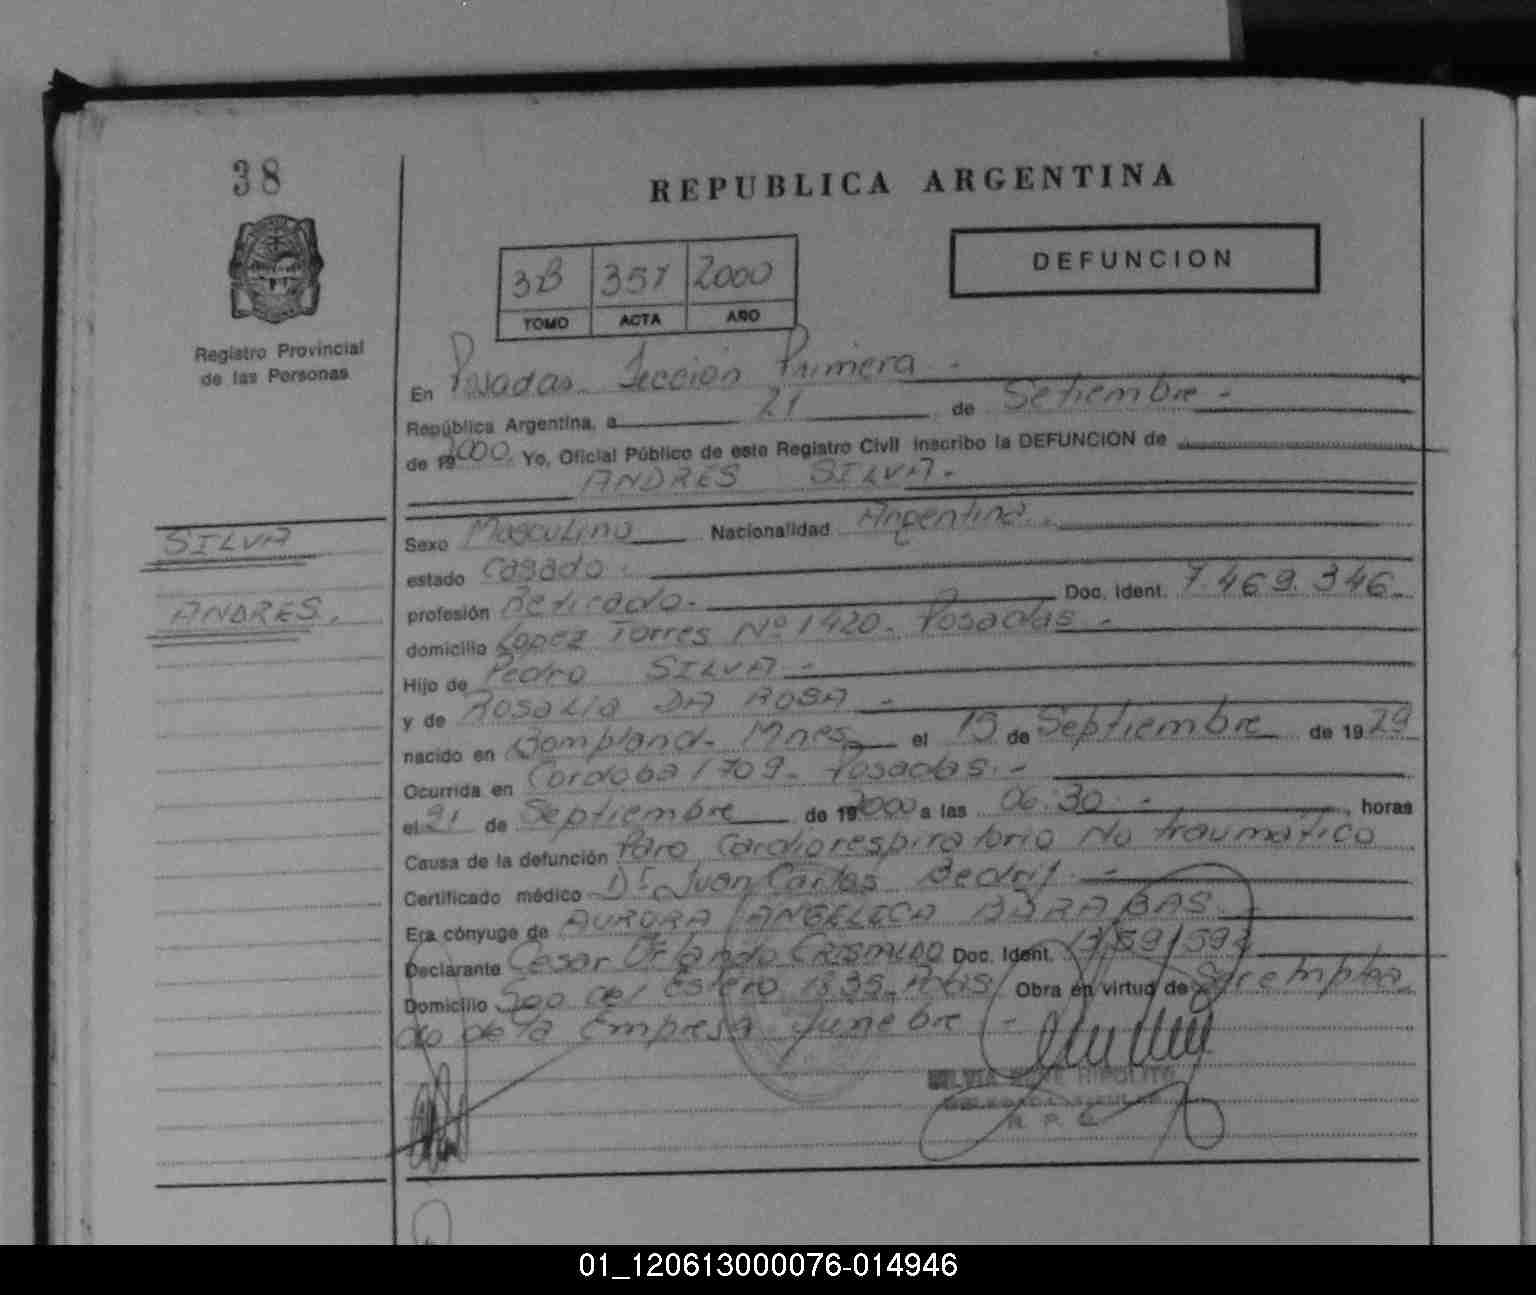 38
REPUBLICA ARGENTINA
DEFUNCION
3B 351 2000
TOMO ACTA AÑO
Registro Provincial
de las Personas
En Posadas Sección Primera -
República Argentina, a 21 de Setiembre -
de 192000. Yo, Oficial Público de este Registro Civil inscribo la DEFUNCION de
ANDRES SILVA -
SILVA
ANDRES.
Sexo Masculino Nacionalidad Argentina.
estado Casado.
profesión Retirado. - Doc. Ident. 7.469.346.
domicilio Lopez Torres Nº 1420 - Posadas -
Hijo de Pedro SILVA -
y de Rosalia DA ROSA -
nacido en Bompland - Mnes el 15 de Septiembre de 1929
Ocurrida en Cordoba 1709 - Posadas. -
el 21 de Septiembre de 192000 a las 06:30. - horas
Causa de la defunción Paro Cardiorespiratorio No traumatico
Certificado médico Dr. Juan Carlos
Era cónyuge de AURORA ANGELICA BARABAS
Declarante Cesar Orlando CRISMALDO Doc. Ident.
Domicilio Sgo del Estero 1835 - Pdas Obra en virtud de Ser emplea
do de la Empresa funebre -
HIPOLITO
R. P.
01_120613000076-014946